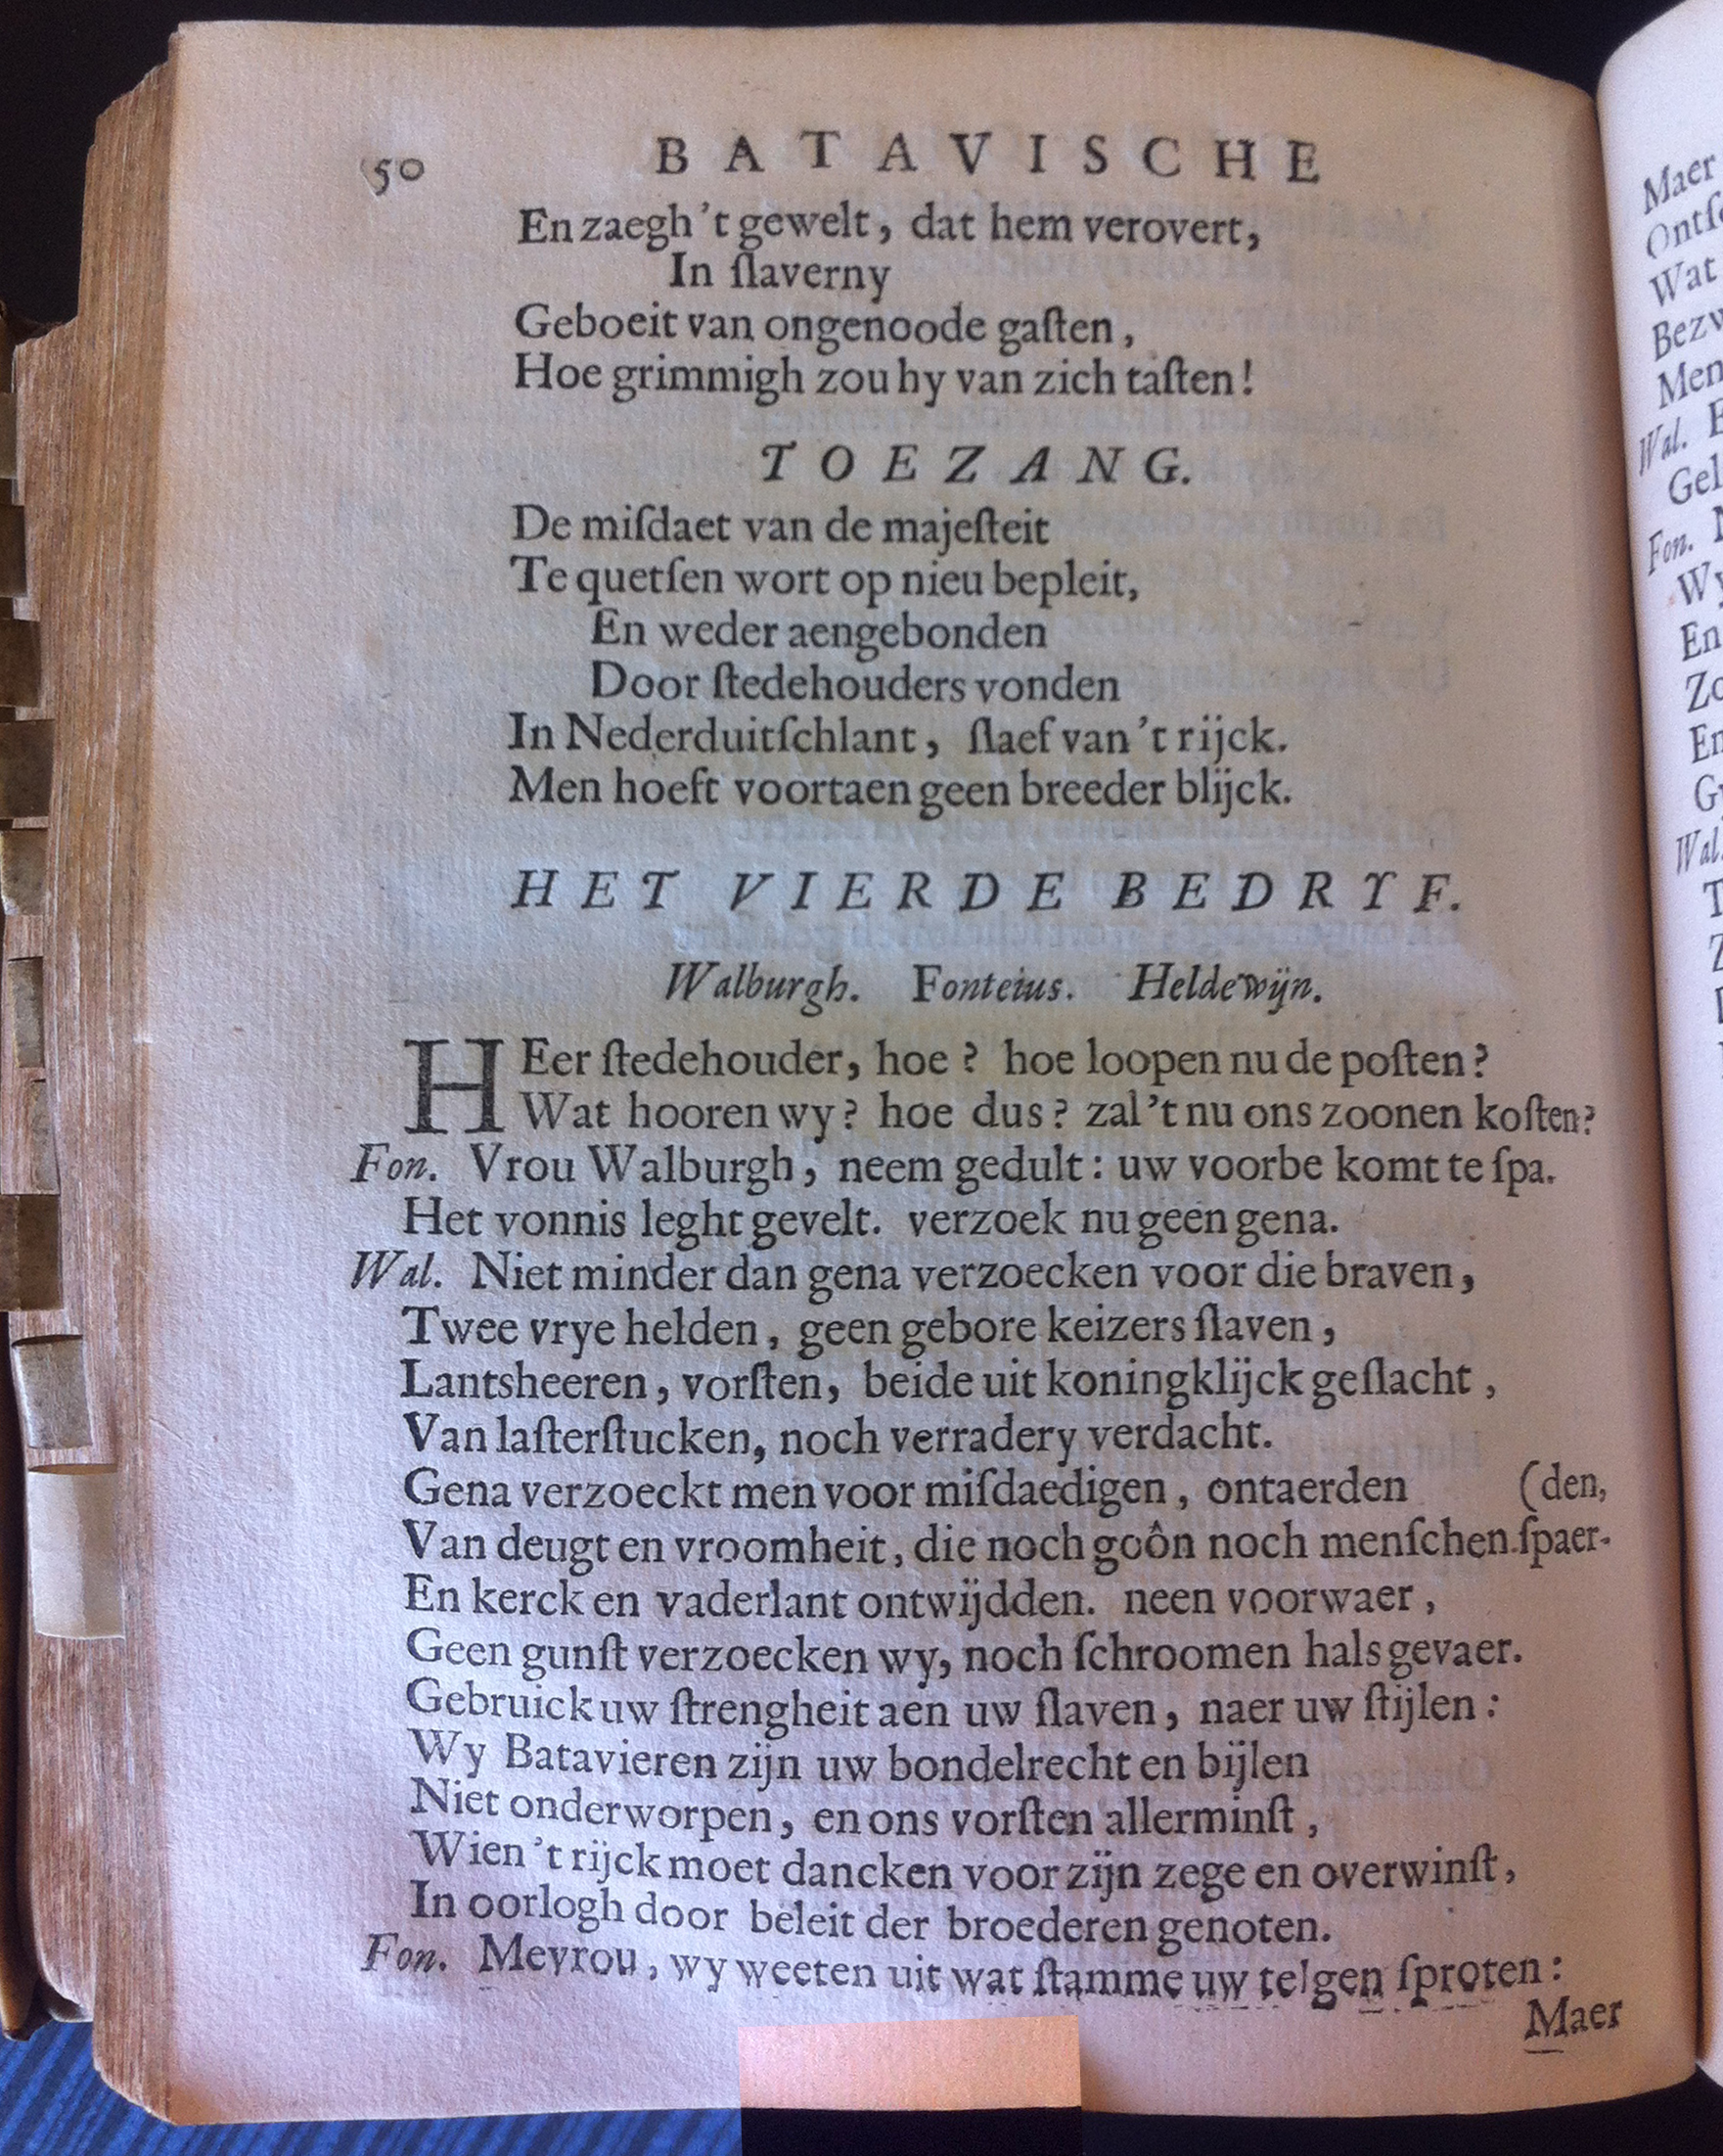 50 BATAVISCHE
En zaegh 't gewelt, dat hem verovert,
In ſlaverny
Geboeit van ongenoode gaſten,
Hoe grimmigh zou hy van zich taſten!
TOEZANG.
De miſdaet van de majeſteit
Te quetſen wort op nieu bepleit,
En weder aengebonden
Door ſtedehouders vonden
In Nederduitſchlant, ſlaef van 't rijck.
Men hoeft voortaen geen breeder blijck.
HET VIERDE BEDRYF.
Walburgh. Fonteius. Heldewijn.
HEer ſtedehouder, hoe? hoe loopen nu de poſten?
Wat hooren wy? hoe dus? zal 't nu ons zoonen koſten?
Fon. Vrou Walburgh, neem gedult: uw voorbe komt te ſpa.
Het vonnis leght gevelt. verzoek nu geen gena.
Wal. Niet minder dan gena verzoecken voor die braven,
Twee vrye helden, geen gebore keizers ſlaven,
Lantsheeren, vorſten, beide uit koningklijck geſlacht,
Van laſterſtucken, noch verradery verdacht.
Gena verzoeckt men voor miſdaedigen, ontaerden (den,
Van deugt en vroomheit, die noch goôn noch menſchen ſpaer-
En kerck en vaderlant ontwijdden. neen voorwaer,
Geen gunſt verzoecken wy, noch ſchroomen hals gevaer.
Gebruick uw ſtrengheit aen uw ſlaven, naer uw ſtijlen:
Wy Batavieren zijn uw bondelrecht en bijlen
Niet onderworpen, en ons vorſten allerminſt,
Wien 't rijck moet dancken voor zijn zege en overwinſt,
In oorlogh door beleit der broederen genoten.
Fon. Mevrou, wy weeten uit wat ſtamme uw telgen ſproten:
Maer
Maer
Wat
Men
Wal.
Fon.
En
Wal.